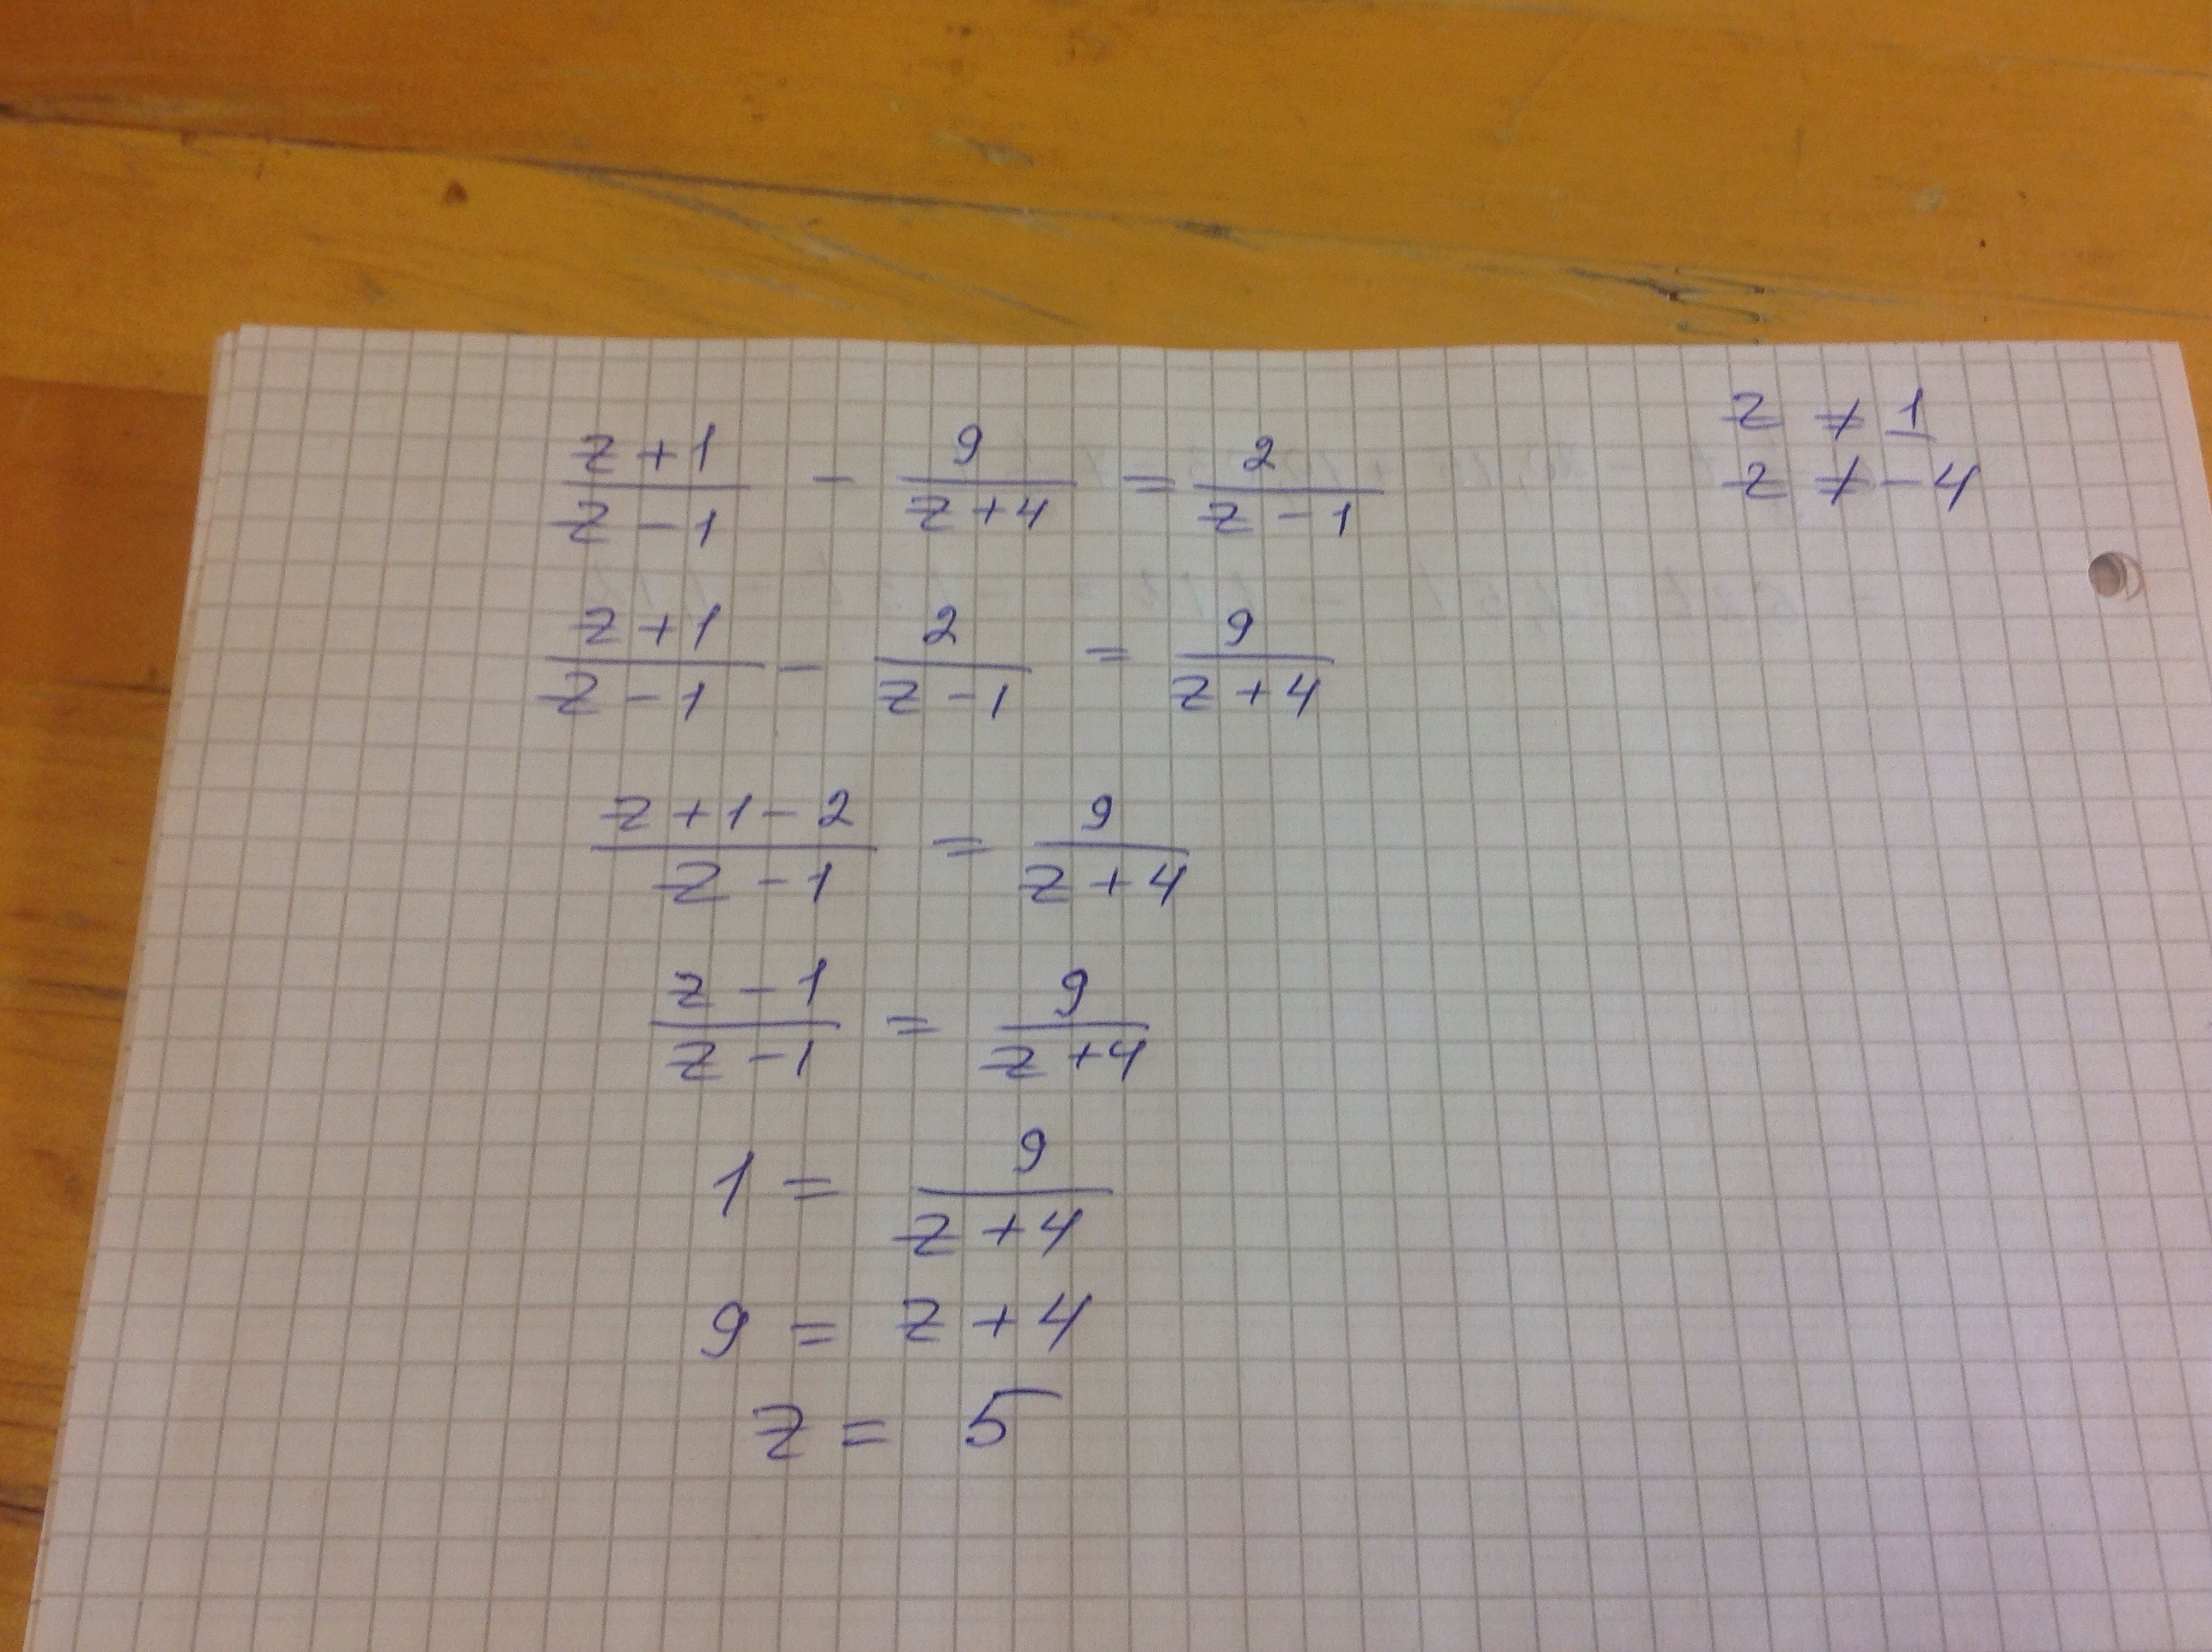 (z+1)/(z-1) - 9/(z+4) = 2/(z-1)
z ≠ 1
z ≠ -4
(z+1)/(z-1) - 2/(z-1) = 9/(z+4)
(z+1-2)/(z-1) = 9/(z+4)
(z-1)/(z-1) = 9/(z+4)
1 = 9/(z+4)
9 = z+4
z = 5